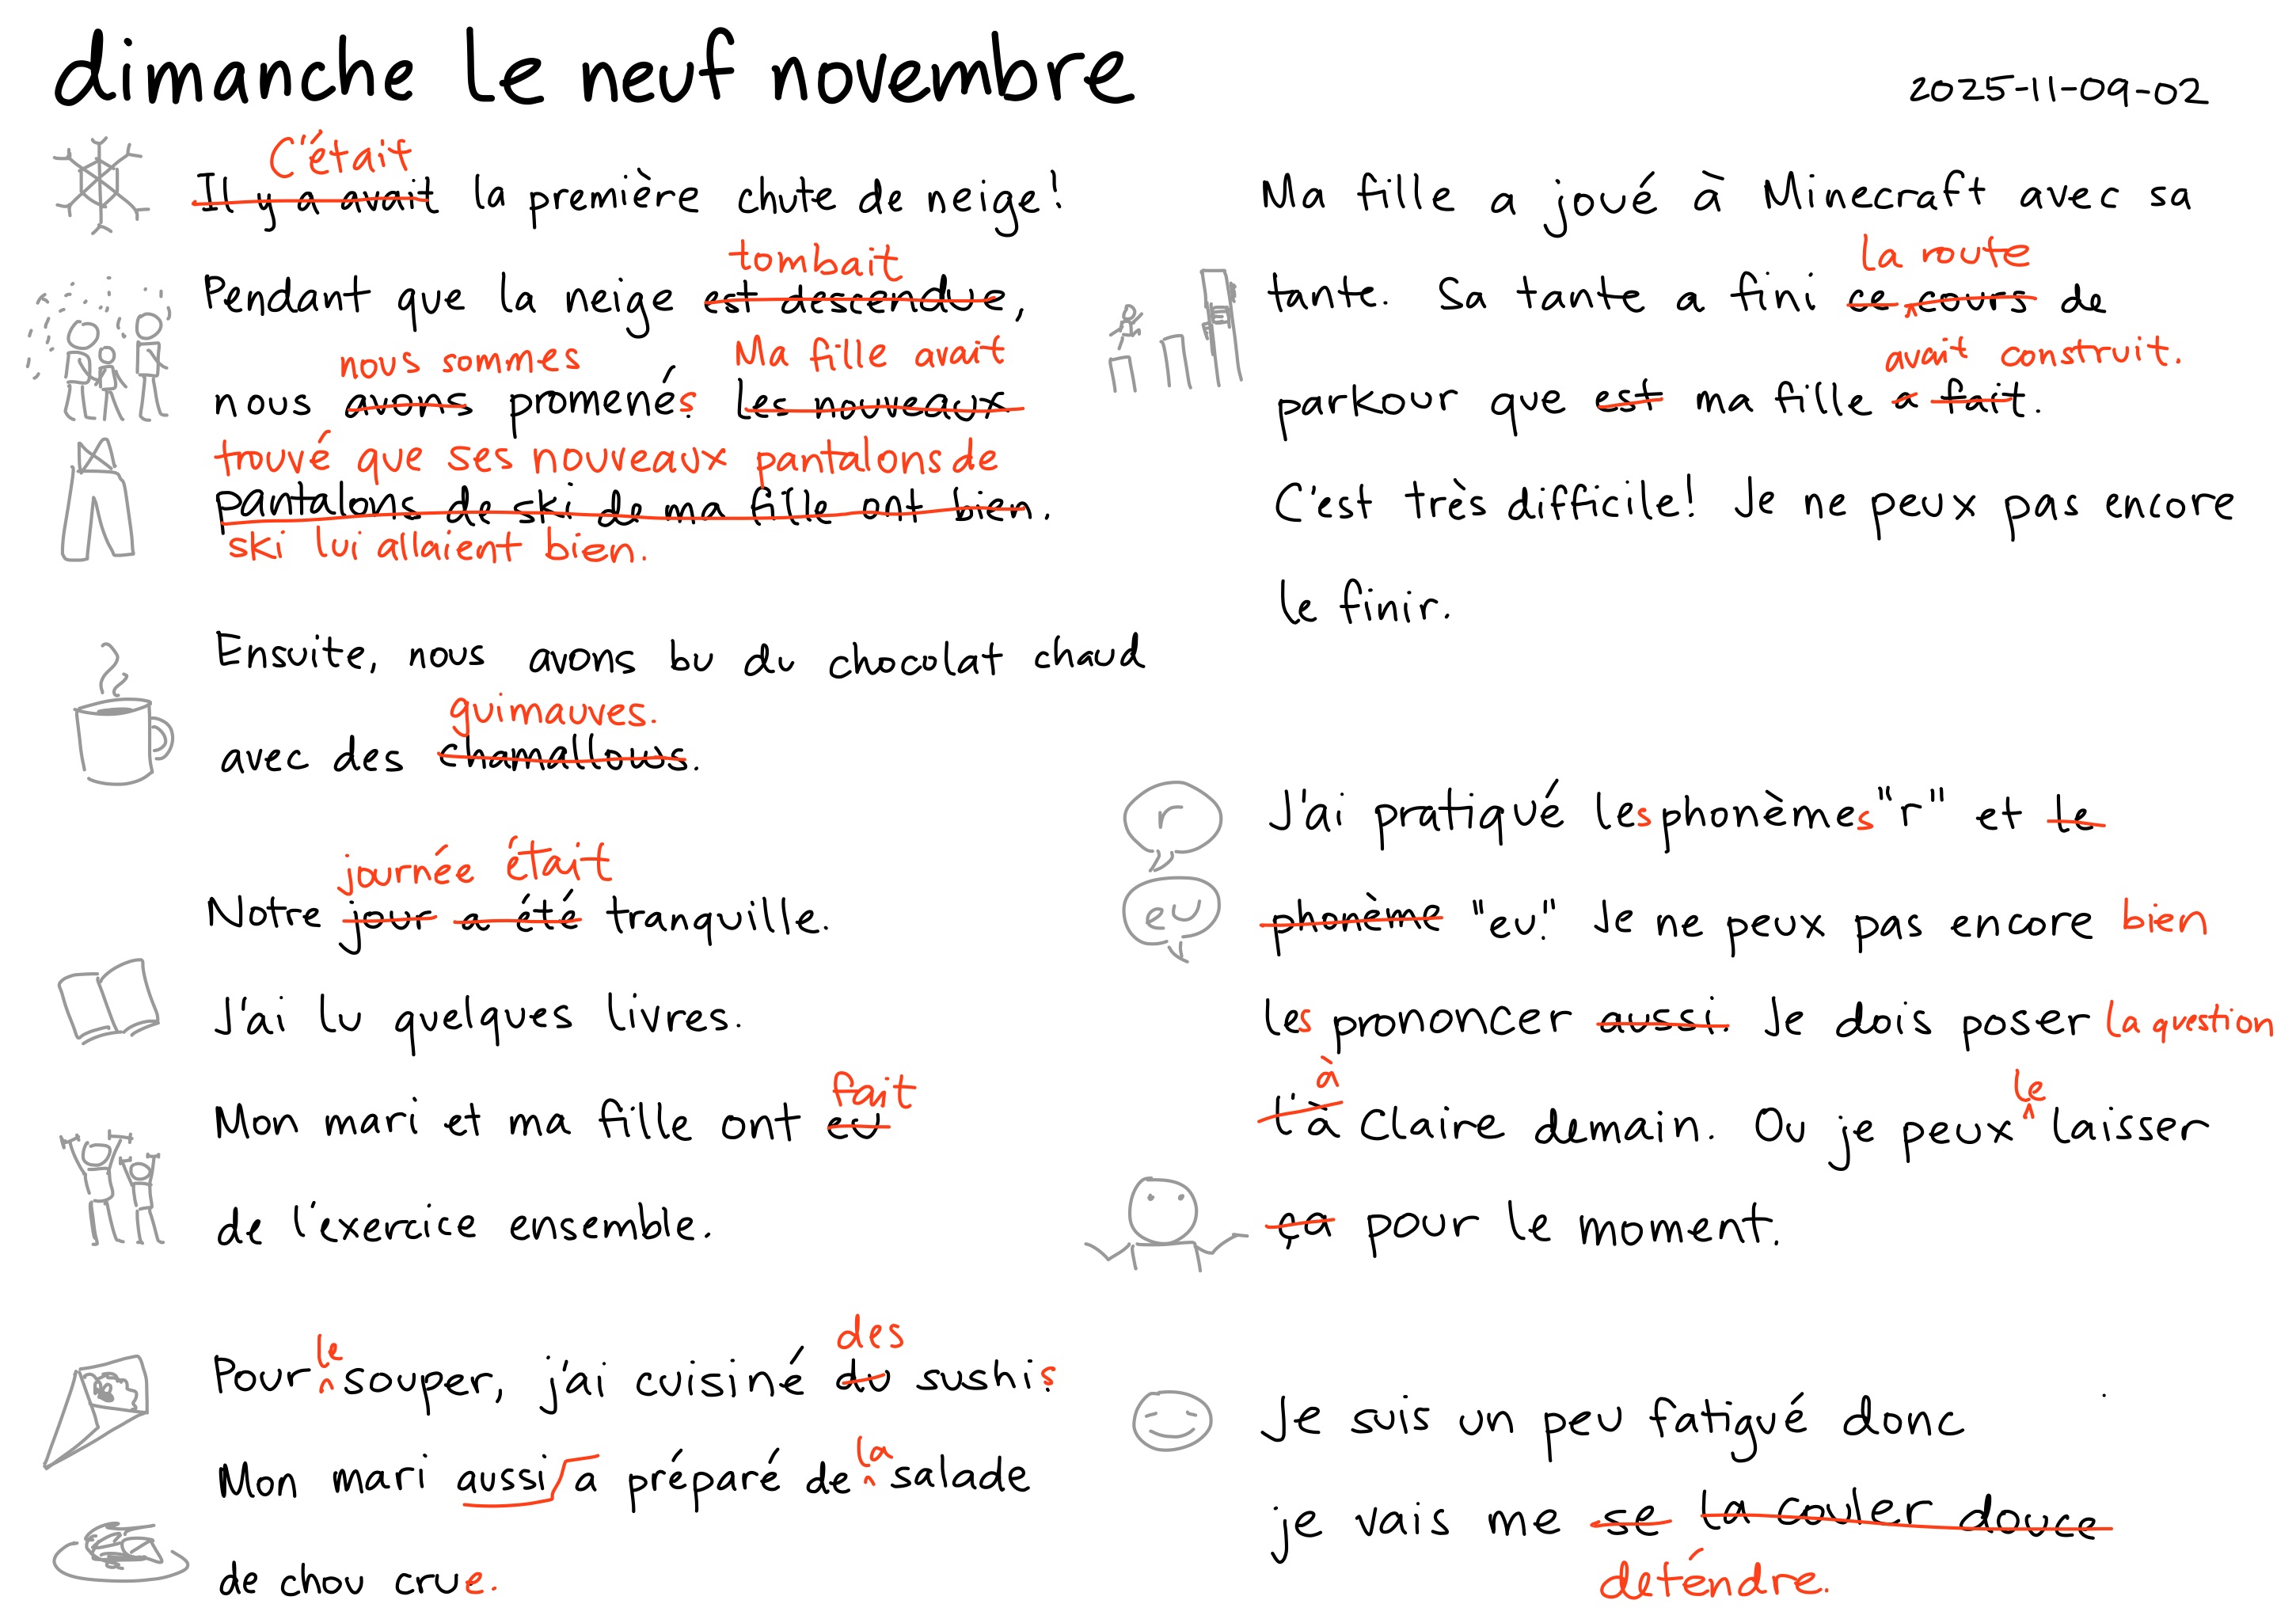 dimanche le neuf novembre
2025-11-09-02
C'était
Il y a avait la première chute de neige!
tombait
Pendant que la neige est descendue,
nous sommes Ma fille avait
nous avons promenés. Les nouveaux
trouvé que ses nouveaux pantalons de
pantalons de ski de ma fille ont bien.
ski lui allaient bien.
Ensuite, nous avons bu du chocolat chaud
guimauves.
avec des chamallows.
journée était
Notre jour a été tranquille.
J'ai lu quelques livres.
fait
Mon mari et ma fille ont eu
de l'exercice ensemble.
le des
Pour souper, j'ai cuisiné du sushis.
la
Mon mari aussi a préparé de salade
de chou crue.
Ma fille a joué à Minecraft avec sa
la route
tante. Sa tante a fini ce cours de
avait construit.
parkour que est ma fille a fait.
C'est très difficile! Je ne peux pas encore
le finir.
r
J'ai pratiqué les phonèmes "r" et le
eu
phonème "eu." Je ne peux pas encore bien
les prononcer aussi. Je dois poser la question
à le
l'à Claire demain. Ou je peux laisser
ça pour le moment.
Je suis un peu fatigué donc
je vais me se la couler douce
deténdre.